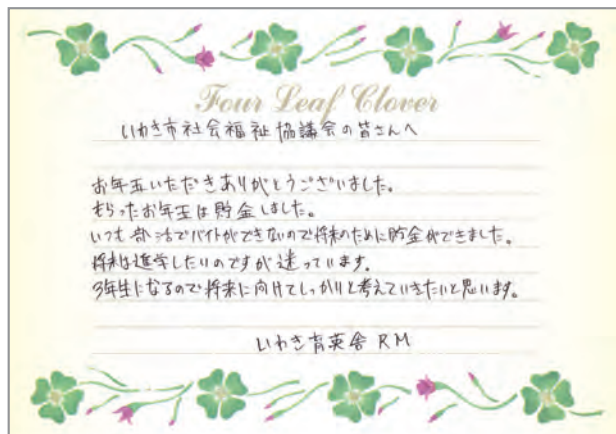 Four Leaf Clover
いわき市社会福祉協議会の皆さんへ
お年玉いただきありがとうございました。
もらったお年玉は貯金しました。
いつも部活でバイトができないので将来のために貯金ができました。
将来は進学したいのですが迷っています。
3年生になるので将来に向けてしっかりと考えていきたいと思います。
いわき育英舎 RM